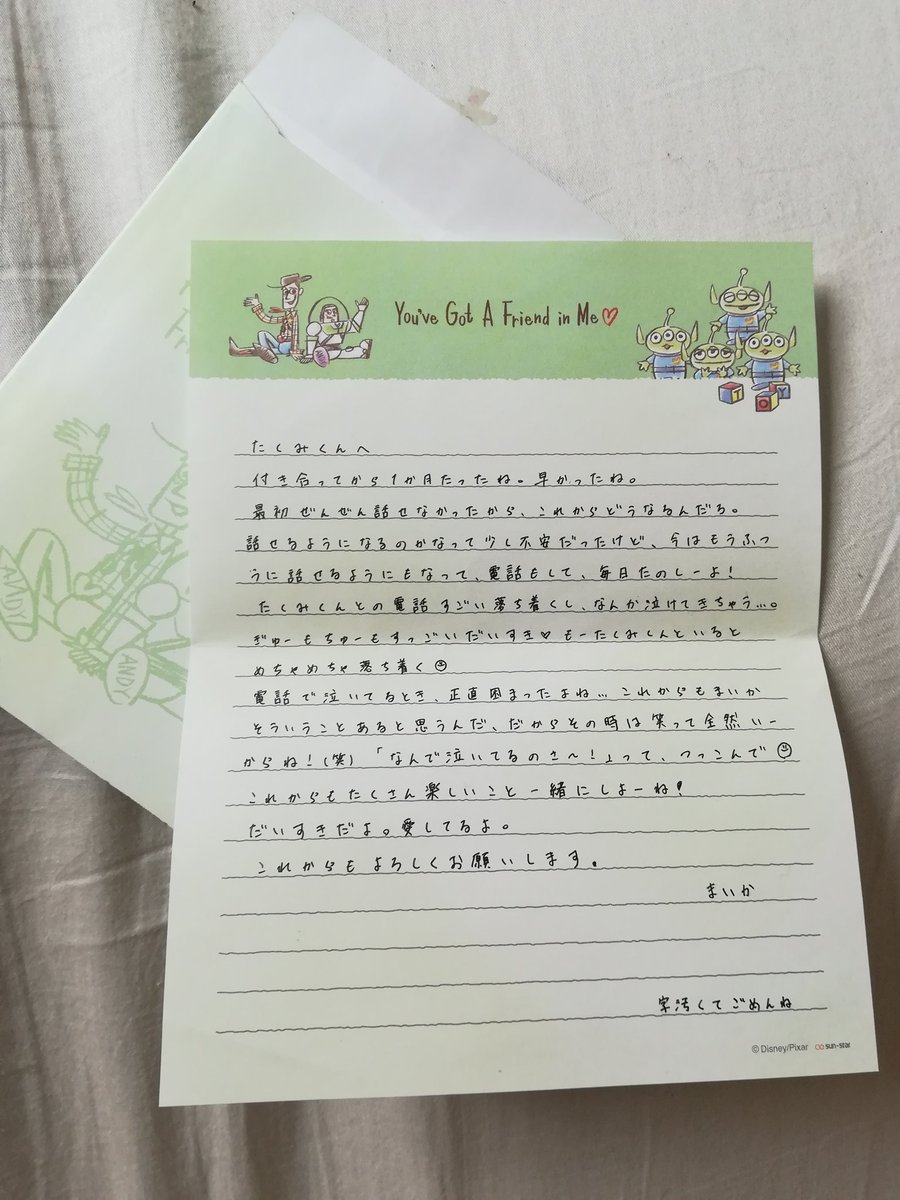 You've Got A Friend in Me
T
O
Y
たくみくんへ
付き合ってから1か月たったね。早かったね。
最初ぜんぜん話せなかったから、これからどうなるんだろ。
話せるようになるのかなって少し不安だったけど、今はもうふつ
うに話せるようにもなって、電話もして、毎日たのしーよ!
たくみくんとの電話すごい落ち着くし、なんか泣けてきちゃう...。
ぎゅーもちゅーもすっごいだいすき♡もーたくみくんといると
めちゃめちゃ落ち着く☺
電話で泣いてるとき、正直困まったよね...これからもまいか
そういうことあると思うんだ、だからその時は笑って全然いー
からね!(笑)「なんで泣いてるのさ~!」って、つっこんで☺
これからもたくさん楽しいこと一緒にしよーね!
だいすきだよ。愛してるよ。
これからもよろしくお願いします。
まいか
字汚くてごめんね
© Disney/Pixar sun-star
ANDY
ANDY